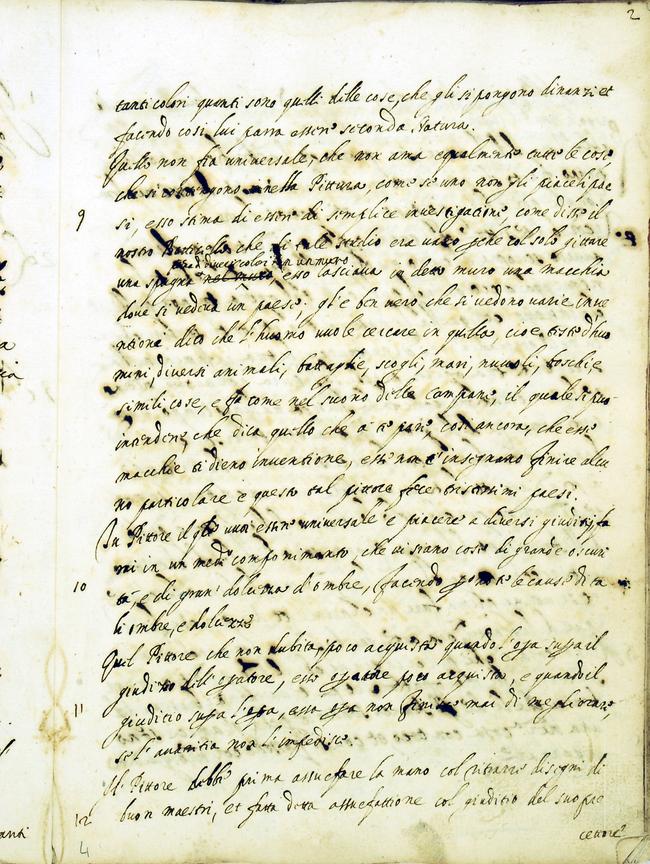 2
tanti colori quanti sono quelli delle cose, che gli si pongono dinanzi et
facendo cosi lui parra essere seconda Natura.
Quello non fia universale, che non ama egualmente tutte le cose
che si contengono nella Pittura, come se uno non gli piace li pae
9 si, esso stima di essere di semplice investigatione, come disse il
nostro Botticella che di tale studio era vano, perche col solo gittare
piena di diversi colori in un muro
una spugna nel muro, esso lasciava in detto muro una macchia
dove si vedeva un paese; gl'e ben vero che si vedono varie inve
ntioni dico che l'huomo vuole cercare in quella, cioe teste d'huo
mini, diversi animali, battaglie, scogli, mari, nuvoli, boschi e
simili cose, e fa come nel suono delle campane, il quale si puo
intendere, che dica quello che a te pare, cosi ancora, che esse
macchie ti dieno inventione, esse non t'insegnano finire alcu
no particolare e questo tal pittore fece tristissimi paesi.
Tu Pittore il quale vuoi essere universale e piacere a diversi giuditij, fa
rai in un medesimo componimento, che vi siano cose di grande oscuri
10 tà, e di gran dolcezza d'ombre, facendo pero note le cause di ta
li ombre, e dolcezze
Quel Pittore che non dubita, poco acquista quando l'opa supa il
giuditio dell'opatore, esso opatore poco acquista, e quando il
11 giuditio supa l'opa, essa opa non finisce mai di megliorare,
se l'avaritia non l'impedisce
Il Pittore debbe prima assuefare la mano col ritrarre disegni di
12 buon maestri, et fatta detta assuefattione col giuditio del suo pre
cettore
4
anti